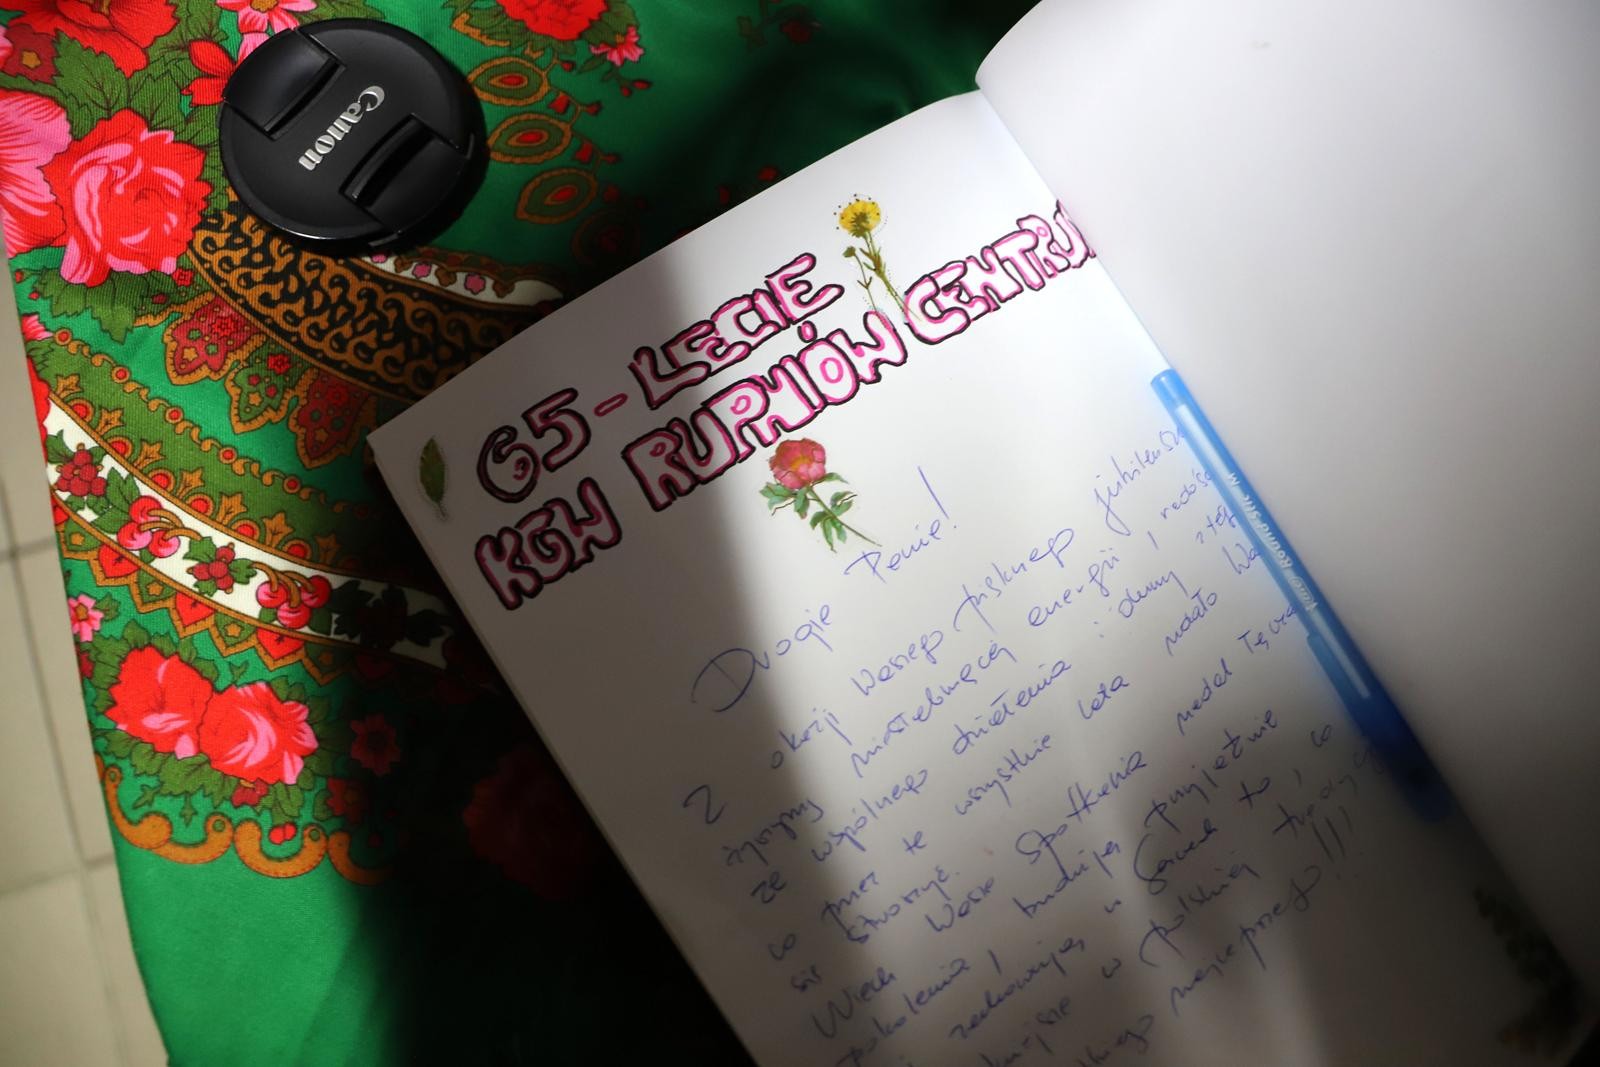 Canon
65-LECIE
KGW RUPNIÓW CENTRUM
Drogie Panie!
Z okazji Waszego pięknego jubileuszu
życzymy niesłabnącej energii, radości
ze wspólnego działania i dumy z tego,
co przez te wszystkie lata udało Wam
się stworzyć.
Niech Wasze spotkania nadal łączą
pokolenia, budują przyjaźnie
i zachowują w sercach to, co
w polskiej tradycji
najlepszego!!!